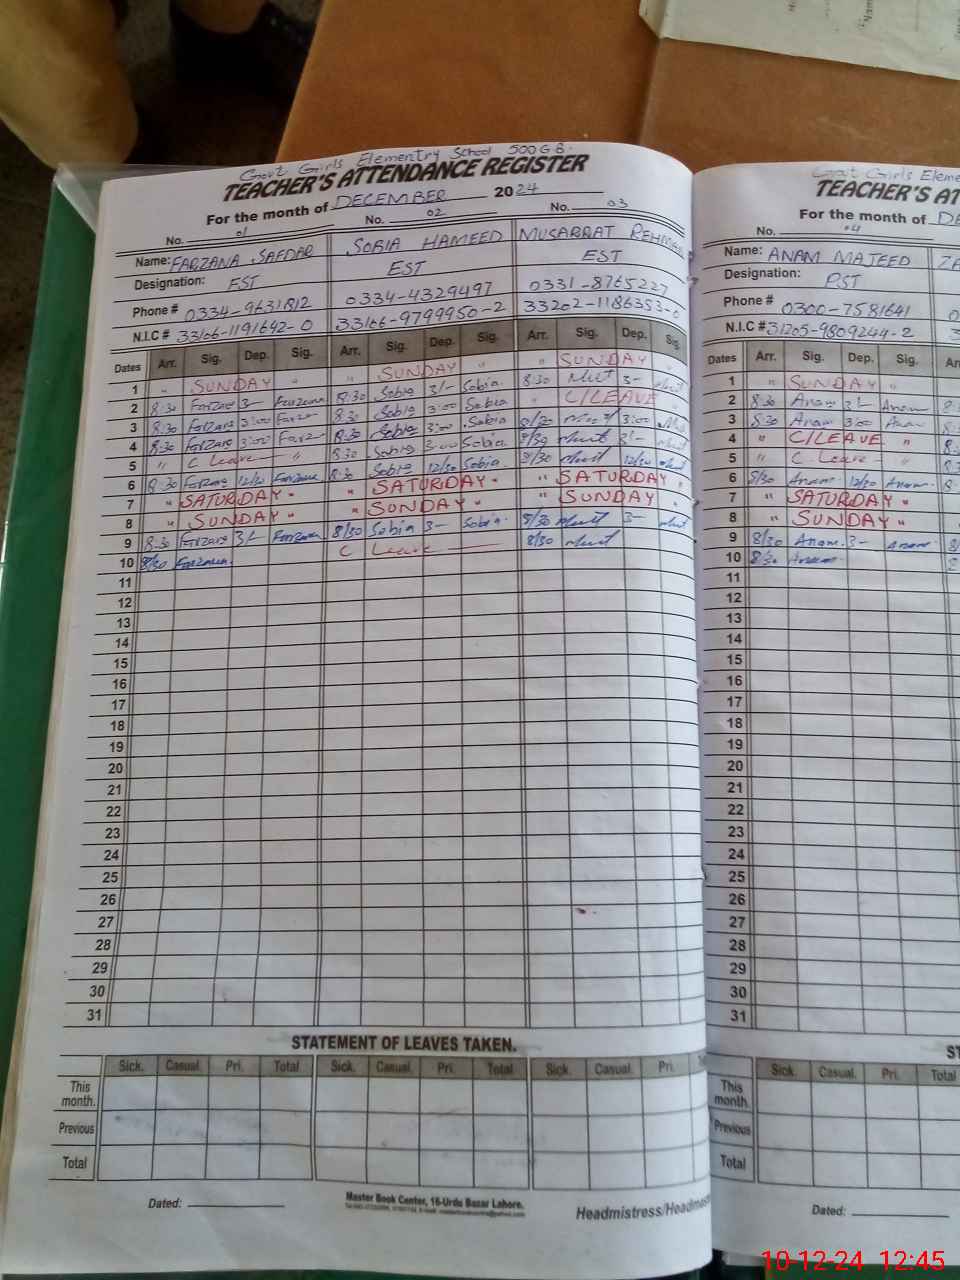 Govt Girls Elementry School 500GB.
TEACHER'S ATTENDANCE REGISTER
For the month of DECEMBER 2024
No. 01 No. 02 No. 03
Name: FARZANA SAFDAR SOBIA HAMEED MUSARRAT REHMAN
Designation: EST EST EST
Phone # 0334-9631812 0334-4329497 0331-8765227
N.I.C # 33166-1191642-0 33166-9799950-2 33202-1186353-0
Dates Arr. Sig. Dep. Sig. Arr. Sig. Dep. Sig. Arr. Sig. Dep. Sig.
1 " SUNDAY " " SUNDAY " " SUNDAY
2 8:30 Farzana 3- Farzana 8:30 Sobia 3/- Sobia 8:30 3-
3 8:30 Farzana 3:00 Farz 8:30 Sobia 3:00 Sobia " C/LEAVE "
4 8:30 Farzana 3:00 Farz 8:30 Sobia 3:00 Sobia 3:00
5 " C Leave " 8:30 Sobia 3:00 Sobia 8/30 3/-
6 8:30 Farzana 12/30 Farzana 8:30 Sobia 12/30 Sobia 8/30 12/30
7 " SATURDAY " " SATURDAY " " SATURDAY "
8 " SUNDAY " " SUNDAY " " SUNDAY "
9 8:30 Farzana 3/- Farzana 8/30 Sobia 3- Sobia 8/30 3-
10 8/30 Farzana C Leave 8/30
11
12
13
14
15
16
17
18
19
20
21
22
23
24
25
26
27
28
29
30
31
STATEMENT OF LEAVES TAKEN.
Sick. Casual. Pri. Total Sick. Casual. Pri. Total Sick. Casual. Pri.
This month.
Previous
Total
Dated:
Master Book Center, 16-Urdu Bazar Lahore.
Headmistress/Headmas
Govt Girls Eleme
TEACHER'S AT
For the month of DE
No. 04
Name: ANAM MAJEED ZA
Designation: PST
Phone # 0300-7581641
N.I.C # 31205-9809244-2
Dates Arr. Sig. Dep. Sig. Arr.
1 " SUNDAY "
2 8:30 Anam 3/- Anam
3 8:30 Anam 3:00 Anam
4 " C/LEAVE "
5 " C Leave "
6 8/30 Anam 12/30 Anam
7 " SATURDAY "
8 " SUNDAY "
9 8/30 Anam 3- Anam
10 8:30 Anam
11
12
13
14
15
16
17
18
19
20
21
22
23
24
25
26
27
28
29
30
31
ST
Sick Casual. Pri. Total
This month.
Previous
Total
Dated:
10-12-24 12:45